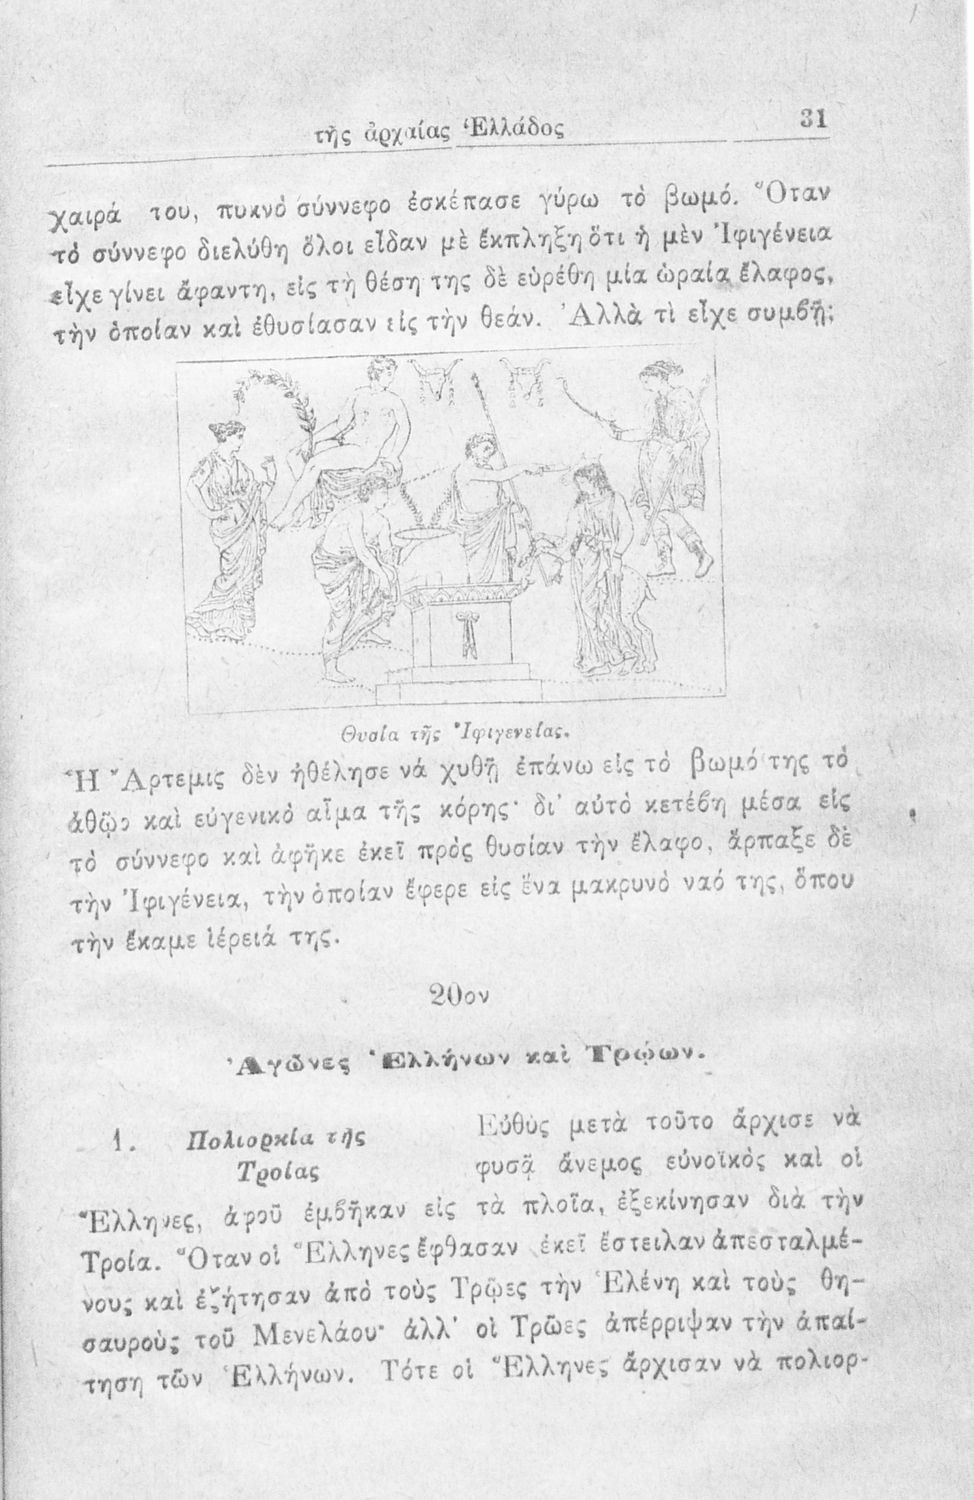 τῆς ἀρχαίας Ἑλλάδος 31
χαιρά του, πυκνὸ σύννεφο ἐσκέπασε γύρω τὸ βωμό. Ὅταν
τὸ σύννεφο διελύθη ὅλοι εἶδαν μὲ ἔκπληξη ὅτι ἡ μὲν Ἰφιγένεια
εἶχε γίνει ἄφαντη, εἰς τὴ θέση της δὲ εὑρέθη μία ὡραία ἔλαφος,
τὴν ὁποίαν καὶ ἐθυσίασαν εἰς τὴν θεάν. Ἀλλὰ τὶ εἶχε συμβῆ;
Θυσία τῆς Ἰφιγενείας.
Ἡ Ἄρτεμις δὲν ἠθέλησε νὰ χυθῇ ἐπάνω εἰς τὸ βωμό της τὸ
ἀθῷο καὶ εὐγενικὸ αἷμα τῆς κόρης· δι' αὐτὸ κετέβη μέσα εἰς
τὸ σύννεφο καὶ ἀφῆκε ἐκεῖ πρὸς θυσίαν τὴν ἔλαφο, ἅρπαξε δὲ
τὴν Ἰφιγένεια, τὴν ὁποίαν ἔφερε εἰς ἕνα μακρυνὸ ναό της, ὅπου
τὴν ἔκαμε ἱέρειά της.
20ον
Ἀγῶνες Ἑλλήνων καὶ Τρώων.
1. Πολιορκία τῆς
Τροίας
Εὐθὺς μετὰ τοῦτο ἄρχισε νὰ
φυσᾷ ἄνεμος εὐνοϊκὸς καὶ οἱ
Ἕλληνες, ἀφοῦ ἐμβῆκαν εἰς τὰ πλοῖα, ἐξεκίνησαν διὰ τὴν
Τροία. Ὅταν οἱ Ἕλληνες ἔφθασαν ἐκεῖ ἔστειλαν ἀπεσταλμέ-
νους καὶ ἐζήτησαν ἀπὸ τοὺς Τρῷες τὴν Ἑλένη καὶ τοὺς θη-
σαυροὺς τοῦ Μενελάου· ἀλλ' οἱ Τρῶες ἀπέρριψαν τὴν ἀπαί-
τηση τῶν Ἑλλήνων. Τότε οἱ Ἕλληνες ἄρχισαν νὰ πολιορ-